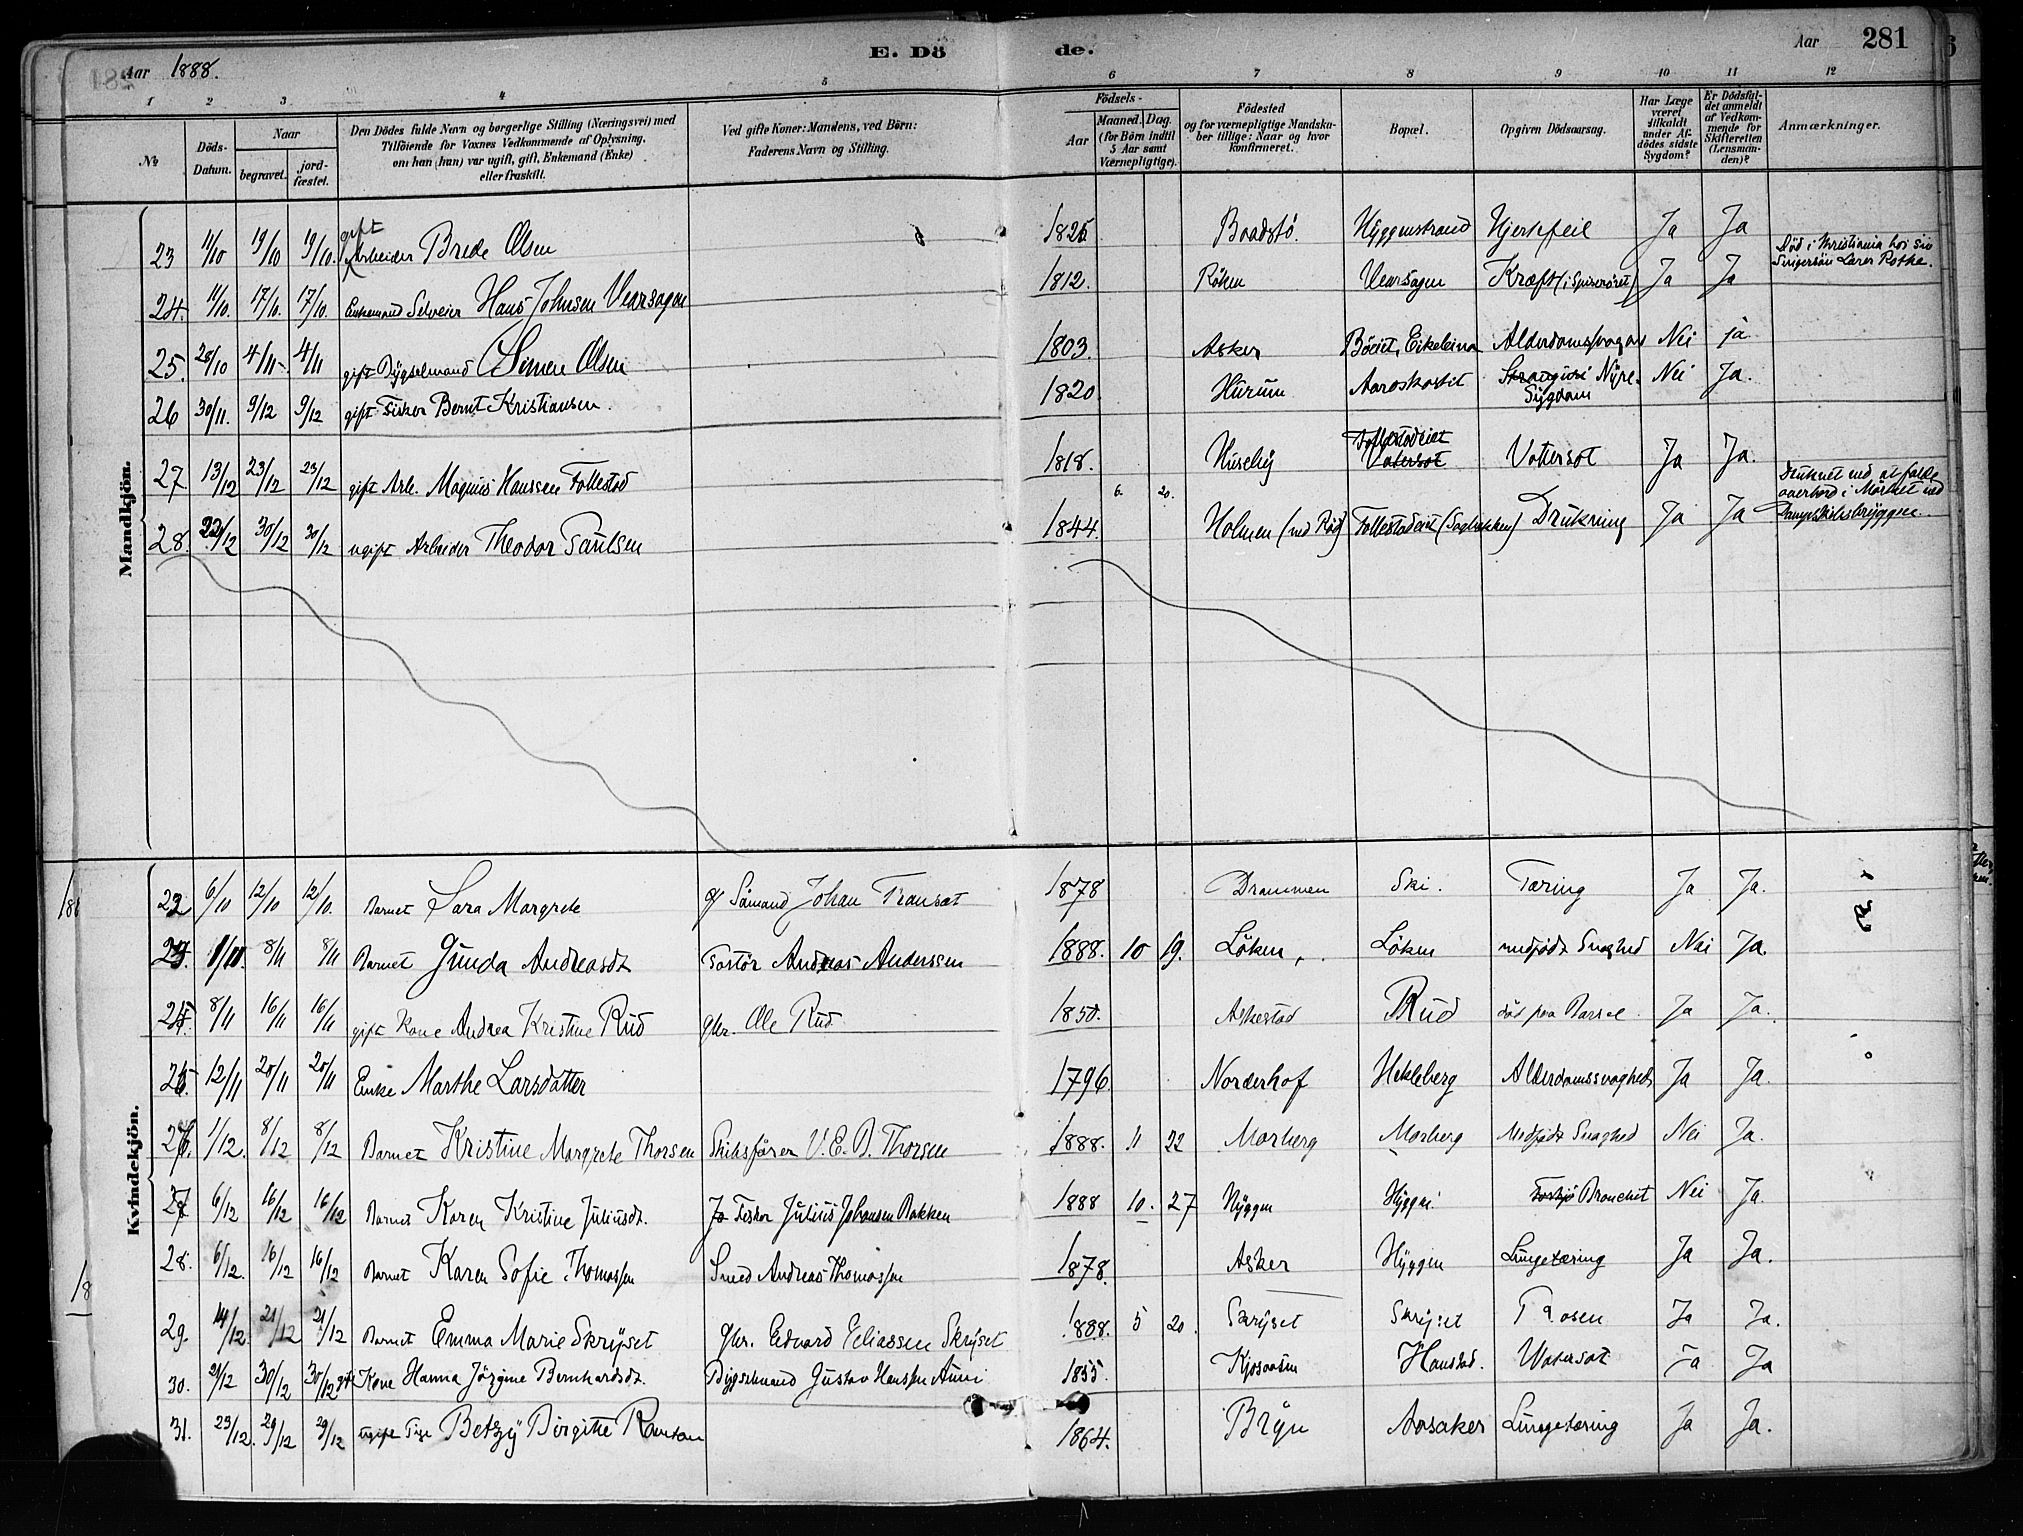 Aar 1888.
E. Dö de.
Aar 281
1 2 3 4 5 6 7 8 9 10 11 12
No
Döds-Datum.
Naar
begravet.
jord-fæstet.
Den Dödes fulde Navn og borgerlige Stilling (Næringsvei) med
Tilföiende for Voxnes Vedkommende af Oplysning,
om han (hun) var ugift, gift, Enkemand (Enke)
eller fraskilt.
Ved gifte Koner: Mandens, ved Börn:
Faderens Navn og Stilling.
Födsels-
Aar
Maaned. Dag.
(for Börn indtil
5 Aar samt
Værnepligtige).
Födested
og for værnepligtige Mandska-
ber tillige: Naar og hvor
konfirmeret.
Bopæl.
Opgiven Dödsaarsag.
Har Læge
været
tilkaldt
under Af-
dödes sidste
Sygdom?
Er Dödsfal-
det anmeldt
af Vedkom-
mende for
Skifteretten
(Lensman-
den)?
Anmærkninger.
Mandkjön.
23 11/10 19/10 19/10. gift Arbeider Brede Olsen 1825 Baadstö. Hyggenstrand Hjertefeil Ja Ja Död i Kristiania hos sin Svigersön Lærer Rothe.
24. 11/10. 17/10. 17/10. Enkemand Selveier Hans Johnsen Vearsagen 1812. Röken Vearsagen Kræft (i Spiserøret) Ja Ja
25. 28/10 4/11 4/11 gift Bygselmand Simen Olsen 1803 Asker Nei ja
26 30/11. 9/12 9/12 gift Fisker Bernt Kristiansen. 1820 Hurum Nyre-Sygdom Nei Ja.
27 13/12 23/12 23/12 gift Arb. Magnus Hanssen Follestad 1818. Huseby Follestadeiet Vatersot Vattersot Ja Ja.
28. 22/12 30/12 30/12 ugift Arbeider Theodor Paulsen 1844. 6. 20. Holmen (ved Röd) Follestadeiet Drukning Ja Ja Druknet ved at falde overbord i Mörket ved Dampskibsbryggen.
Kvindekjön.
22 6/10 12/10 12/10. Barnet Sara Margrete Sömand Johan Transæt 1878 Drammen Ski. Tæring Ja Ja.
23. 1/11. 8/11 8/11 Barnet Gunda Andreasdt Andreas Anderssen 1888. 10 19. Löken Löken medfödt Svaghed Nei Ja.
24 8/11 16/11 16/11 gift Kone Andrea Kristine Rud gbr. Ole Rud 1850. Askestad Rud död paa Barsel Ja Ja.
25 12/11 20/11 20/11 Enke Marthe Larsdatter 1796. Norderhof Hekleberg Alderdomssvaghed Ja Ja.
26. 1/12. 8/12 8/12 Barnet Kristine Margrete Thorsen Skibsförer V. E. B. Thorsen 1888. 11 22 Morberg Morberg Medfödt Svaghed Nei Ja.
27 6/12 16/12 16/12 Barnet Karen Kristine Juliusdt. Fisker Julius Johansen Bakken 1888 10. 27 Hyggen Hyggen Bronchit Nei Ja
28. 6/12. 16/12 16/12 Barnet Karen Sofie Thomassen Smed Andreas Thomassen 1878. Asker Hyggen Lungetæring Ja Ja.
29. 14/12. 21/12 21/12 Barnet Emma Marie Skryset gbr. Edvard Eeliassen Skryset 1888. 5 20. Skryset Skryset Ja Ja.
30. 21/12 30/12 30/12 gift Kone Hanna Jörgine Bernhardsdt. Bygselmand Gustav Hanssen 1855. Hanstad. Vatersot Ja Ja
31. 23/12. 29/12 29/12 ugift Pige Betzy Birgitte 1864. Bryn Aasaker Lungetæring Ja Ja.